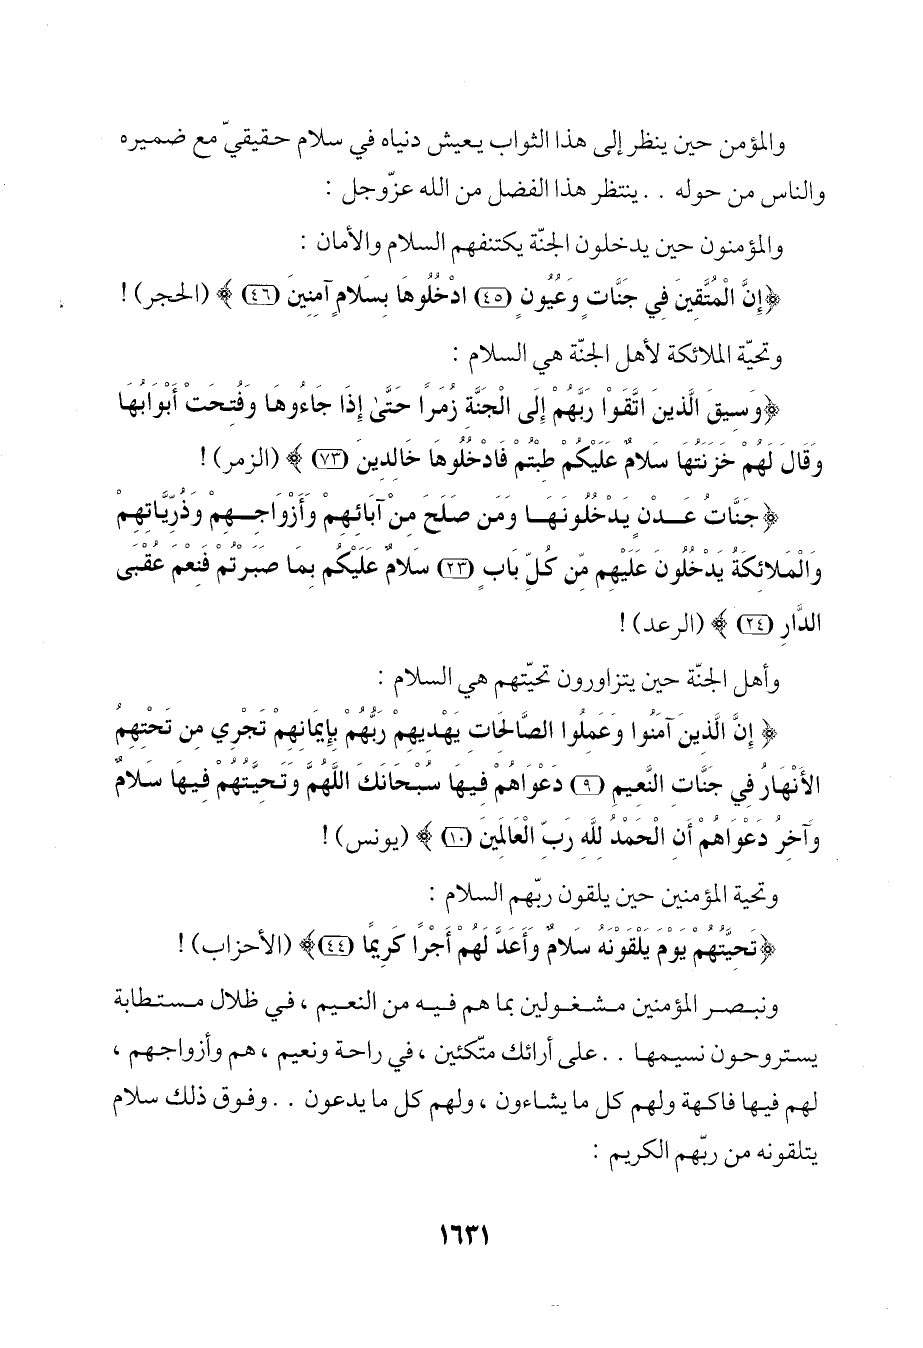 والمؤمن حين ينظر إلى هذا الثواب يعيش دنياه في سلام حقيقيّ مع ضميره
والناس من حوله . . ينتظر هذا الفضل من الله عزّ وجل :
والمؤمنون حين يدخلون الجنّة يكتنفهم السلام والأمان :
﴿إِنَّ الْمُتَّقِينَ فِي جَنَّاتٍ وَعُيُونٍ (٤٥) ادْخُلُوهَا بِسَلامٍ آمِنِينَ (٤٦) ﴾ (الحجر) !
وتحيّة الملائكة لأهل الجنّة هي السلام :
﴿وَسِيقَ الَّذِينَ اتَّقَوْا رَبَّهُمْ إِلَى الْجَنَّةِ زُمَرًا حَتَّىٰ إِذَا جَاءُوهَا وَفُتِحَتْ أَبْوَابُهَا
وَقَالَ لَهُمْ خَزَنَتُهَا سَلامٌ عَلَيْكُمْ طِبْتُمْ فَادْخُلُوهَا خَالِدِينَ (٧٣) ﴾ (الزمر) !
﴿جَنَّاتُ عَدْنٍ يَدْخُلُونَهَا وَمَن صَلَحَ مِنْ آبَائِهِمْ وَأَزْوَاجِهِمْ وَذُرِّيَّاتِهِمْ
وَالْمَلائِكَةُ يَدْخُلُونَ عَلَيْهِم مِّن كُلِّ بَابٍ (٢٣) سَلامٌ عَلَيْكُم بِمَا صَبَرْتُمْ فَنِعْمَ عُقْبَى
الدَّارِ (٢٤) ﴾ (الرعد) !
وأهل الجنّة حين يتزاورون تحيّتهم هي السلام :
﴿ إِنَّ الَّذِينَ آمَنُوا وَعَمِلُوا الصَّالِحَاتِ يَهْدِيهِمْ رَبُّهُمْ بِإِيمَانِهِمْ تَجْرِي مِن تَحْتِهِمُ
الأَنْهَارُ فِي جَنَّاتِ النَّعِيمِ (٩) دَعْوَاهُمْ فِيهَا سُبْحَانَكَ اللَّهُمَّ وَتَحِيَّتُهُمْ فِيهَا سَلامٌ
وَآخِرُ دَعْوَاهُمْ أَنِ الْحَمْدُ لِلَّهِ رَبِّ الْعَالَمِينَ (١٠) ﴾ (يونس) !
وتحية المؤمنين حين يلقون ربّهم السلام :
﴿تَحِيَّتُهُمْ يَوْمَ يَلْقَوْنَهُ سَلامٌ وَأَعَدَّ لَهُمْ أَجْرًا كَرِيمًا (٤٤)﴾ (الأحزاب) !
ونبصر المؤمنين مشغولين بما هم فيه من النعيم ، في ظلال مستطابة
يستروحون نسيمها . . على أرائك متّكئين ، في راحة ونعيم ، هم وأزواجهم ،
لهم فيها فاكهة ولهم كل ما يشاءون ، ولهم كل ما يدعون . . وفوق ذلك سلام
يتلقونه من ربّهم الكريم :
١٦٣١